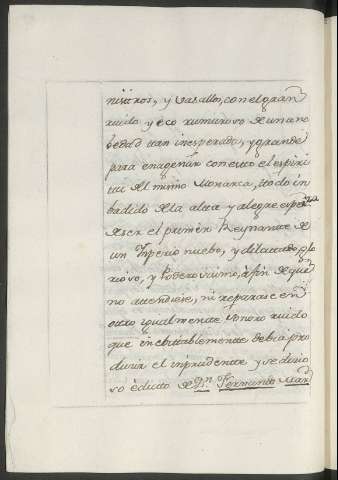 nistros, y vasallos, con el gran
ruido y eco rumuroso de una no
bedad tan inesperada, y grande
para enagenar con esto el espiri
tu del mismo Monarca, todo in
badido de la alta y alegre esperanza
de ser el primer Reynante de
un Ynperio nuebo, y dilatado glo
rioso, y Poderosisimo, à fin de que
no atendiese, ni reparase en
otro igualmente sonoro ruido
que inebittablemente debia pro
ducir el inprudente y sedicio
so édicto de Dn. Fernando Mar